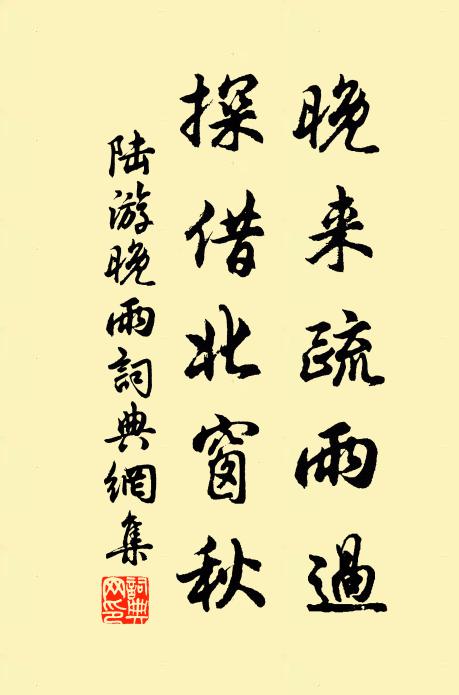 晚来疏雨過
探借北窗秋
陆游晚雨詞典網集
詞典網印